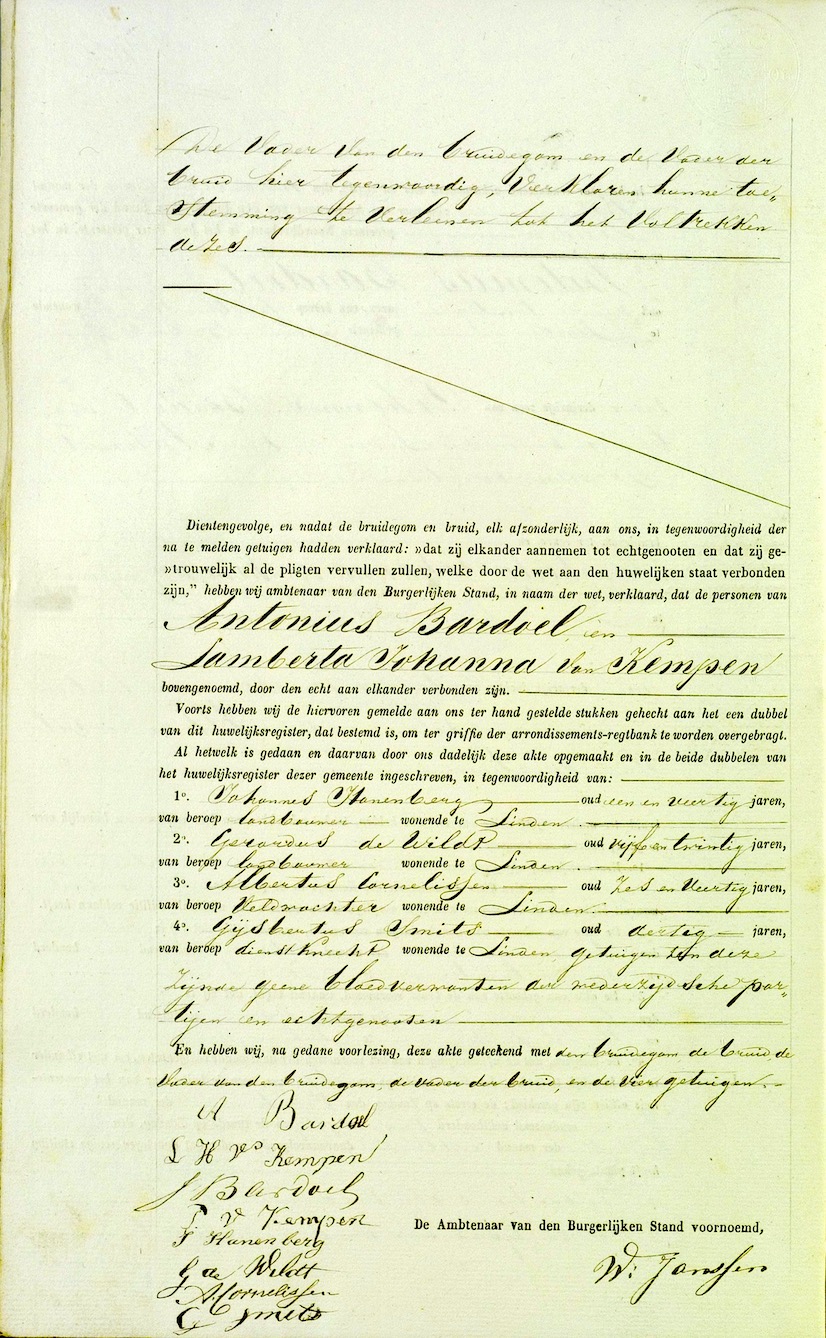 De Vader van den bruidegom en de Vader der
bruid hier tegenwoordig, Verklaren hunne toe„
Stemming te Verleenen tot het Voltrekken
dezes.
Dientengevolge, en nadat de bruidegom en bruid, elk afzonderlijk, aan ons, in tegenwoordigheid der
na te melden getuigen hadden verklaard: »dat zij elkander aannemen tot echtgenooten en dat zij ge-
»trouwelijk al de pligten vervullen zullen, welke door de wet aan den huwelijken staat verbonden
zijn,” hebben wij ambtenaar van den Burgerlijken Stand, in naam der wet, verklaard, dat de personen van
Antonius Bardoel, en
Lamberta Johanna Van Kempen
bovengenoemd, door den echt aan elkander verbonden zijn.
Voorts hebben wij de hiervoren gemelde aan ons ter hand gestelde stukken gehecht aan het een dubbel
van dit huwelijksregister, dat bestemd is, om ter griffie der arrondissements-regtbank te worden overgebragt.
Al hetwelk is gedaan en daarvan door ons dadelijk deze akte opgemaakt en in de beide dubbelen van
het huwelijksregister dezer gemeente ingeschreven, in tegenwoordigheid van:
1o. Johannes Hanenberg oud een en veertig jaren,
van beroep landbouwer wonende te Linden
2o. Gerardus de Wildt oud vijf en twintig jaren,
van beroep landbouwer wonende te Linden
3o. Albertus Cornelissen oud Zes en Veertig jaren,
van beroep Veldwachter wonende te Linden.
4o. Gijsbertus Smits oud dertig jaren,
van beroep dienstknecht wonende te Linden getuigen ten deze
Zijnde geene bloedverwanten der wederzijdsche par„
tijen en echtgenooten
En hebben wij, na gedane voorlezing, deze akte geteekend met den bruidegom de bruid, de
Vader van den bruidegom, de vader der bruid, en de vier getuigen.
A Bardoel
L H Vn Kempen
J Bardoel
V Kempen
J Hanenberg
De Ambtenaar van den Burgerlijken Stand voornoemd,
G de Wildt
W: Janssen
A. Cornelissen
G Smits